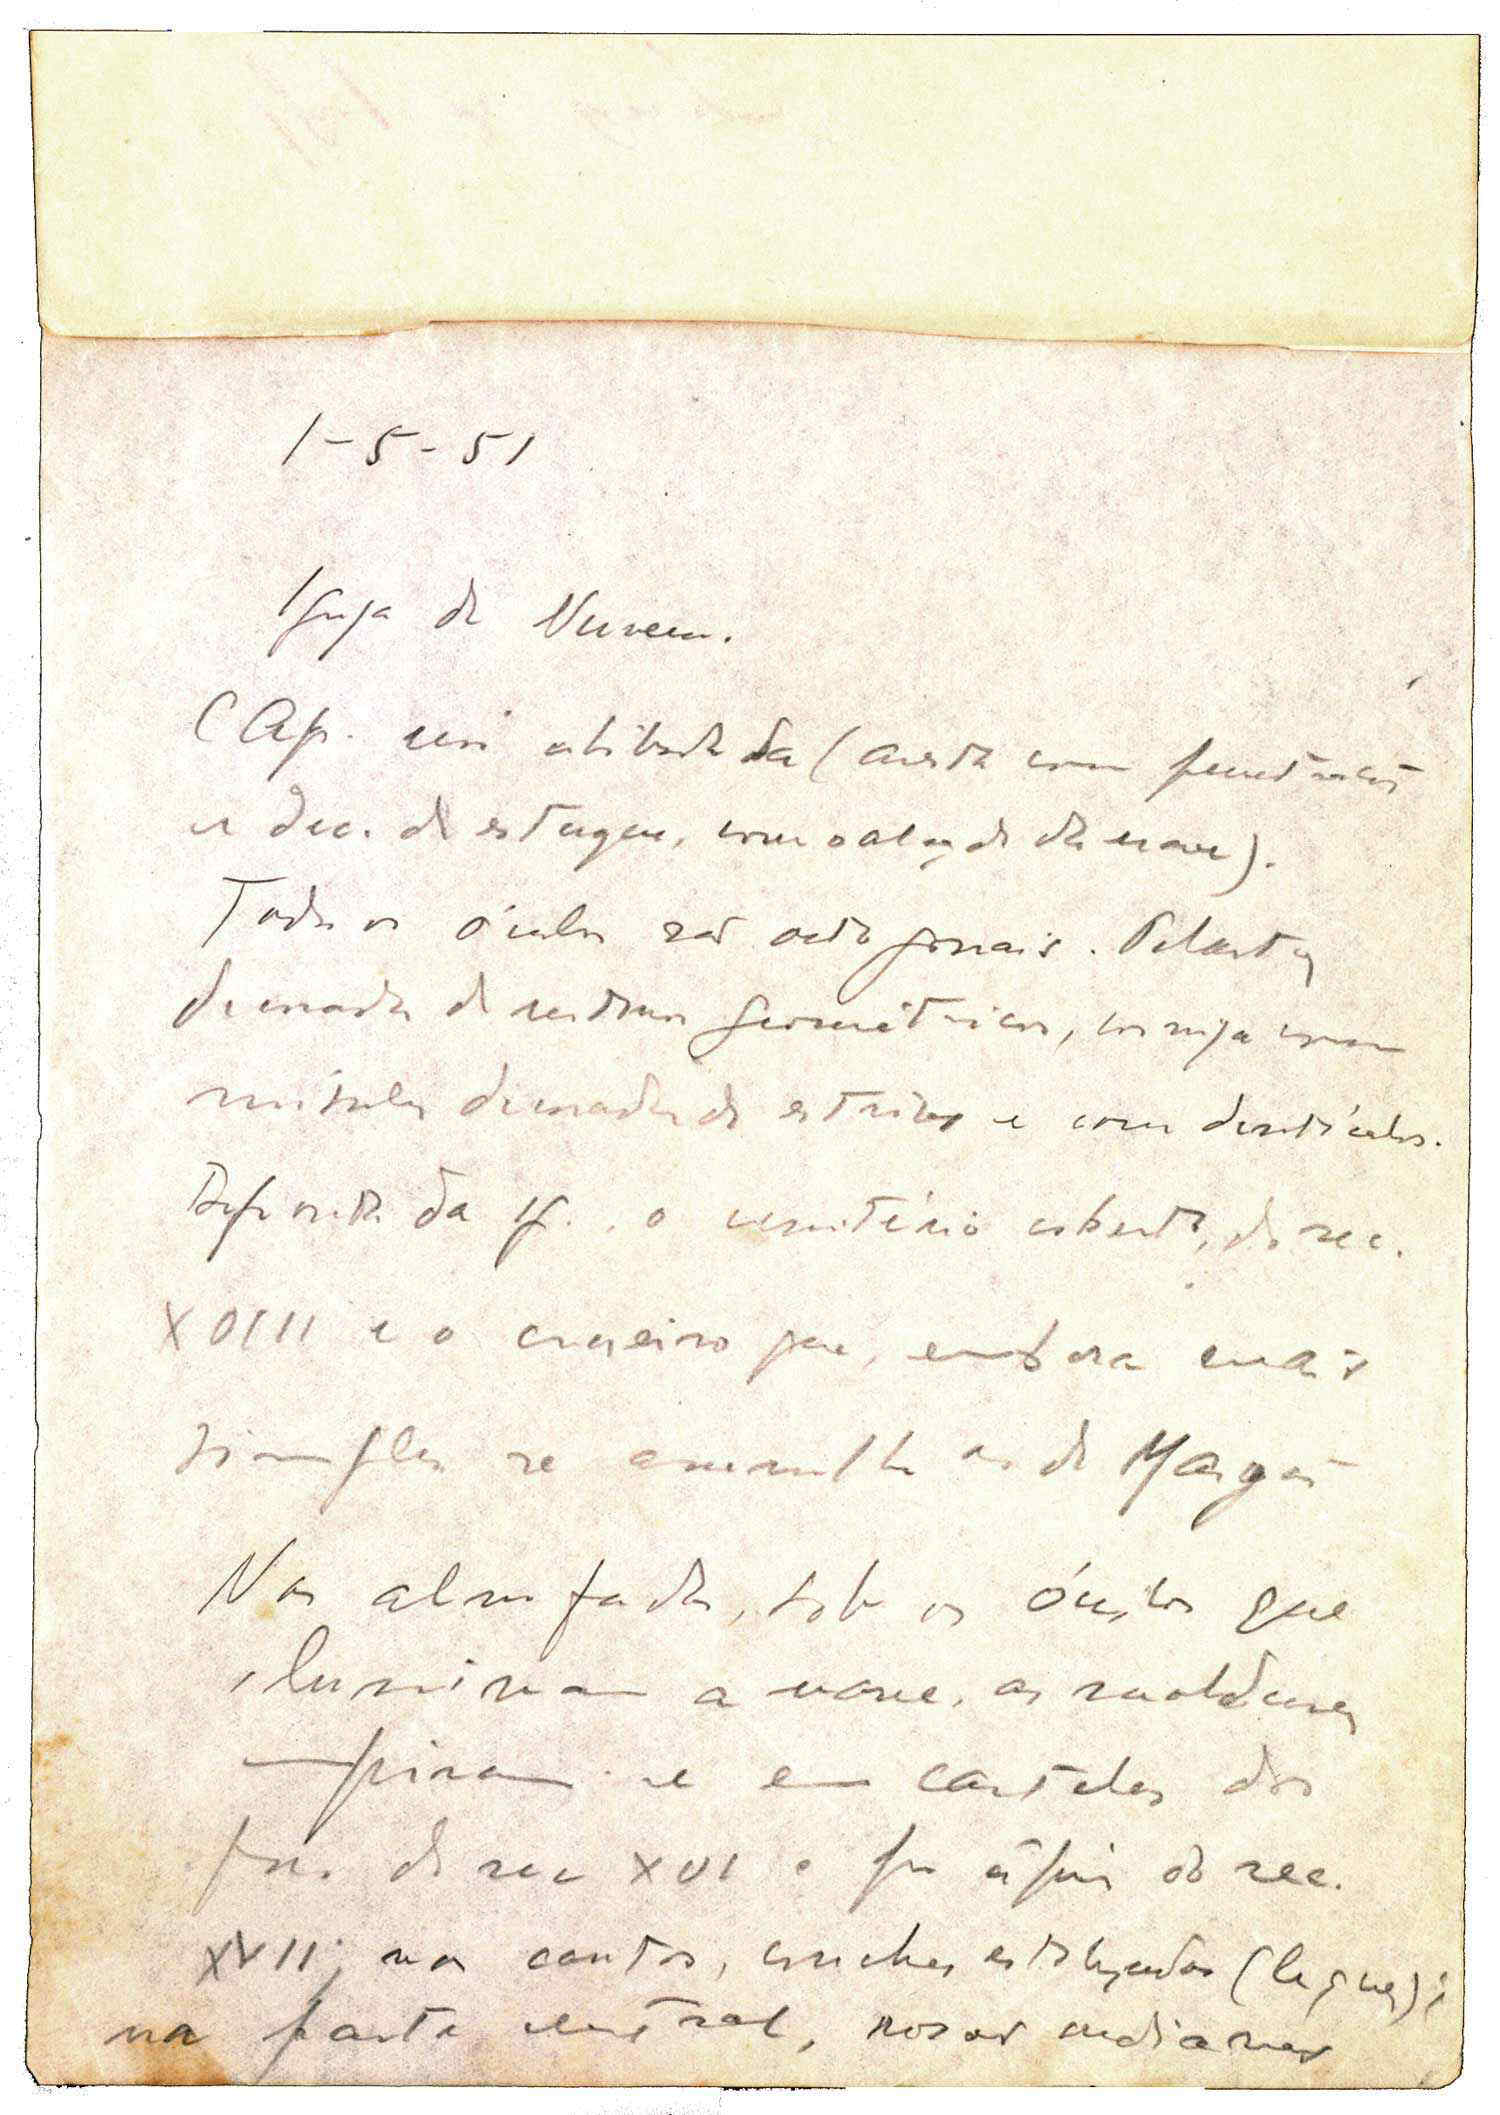 1-5-51
Igreja de Nuvem.
Cap. abobadada (aresta com penetrações
e dec. de estuque, como a da nave).
Todos os óculos são octogonais. Pilastras
decoradas de motivos geométricos, cornija com
mísulas decoradas de estrias e com dentículos.
Defronte da Ig., o cemitério coberto, do sec.
XVIII e o cruzeiro que, embora mais
simples se assemelha ao de Margão
Nas almofadas, sob os óculos que
iluminam a nave, as molduras
inspiram-se em cartelas dos
fins do sec XVI e pr do sec.
XVII; nos cantos, conchas estilizadas (leques);
na parte central, rosas indianas